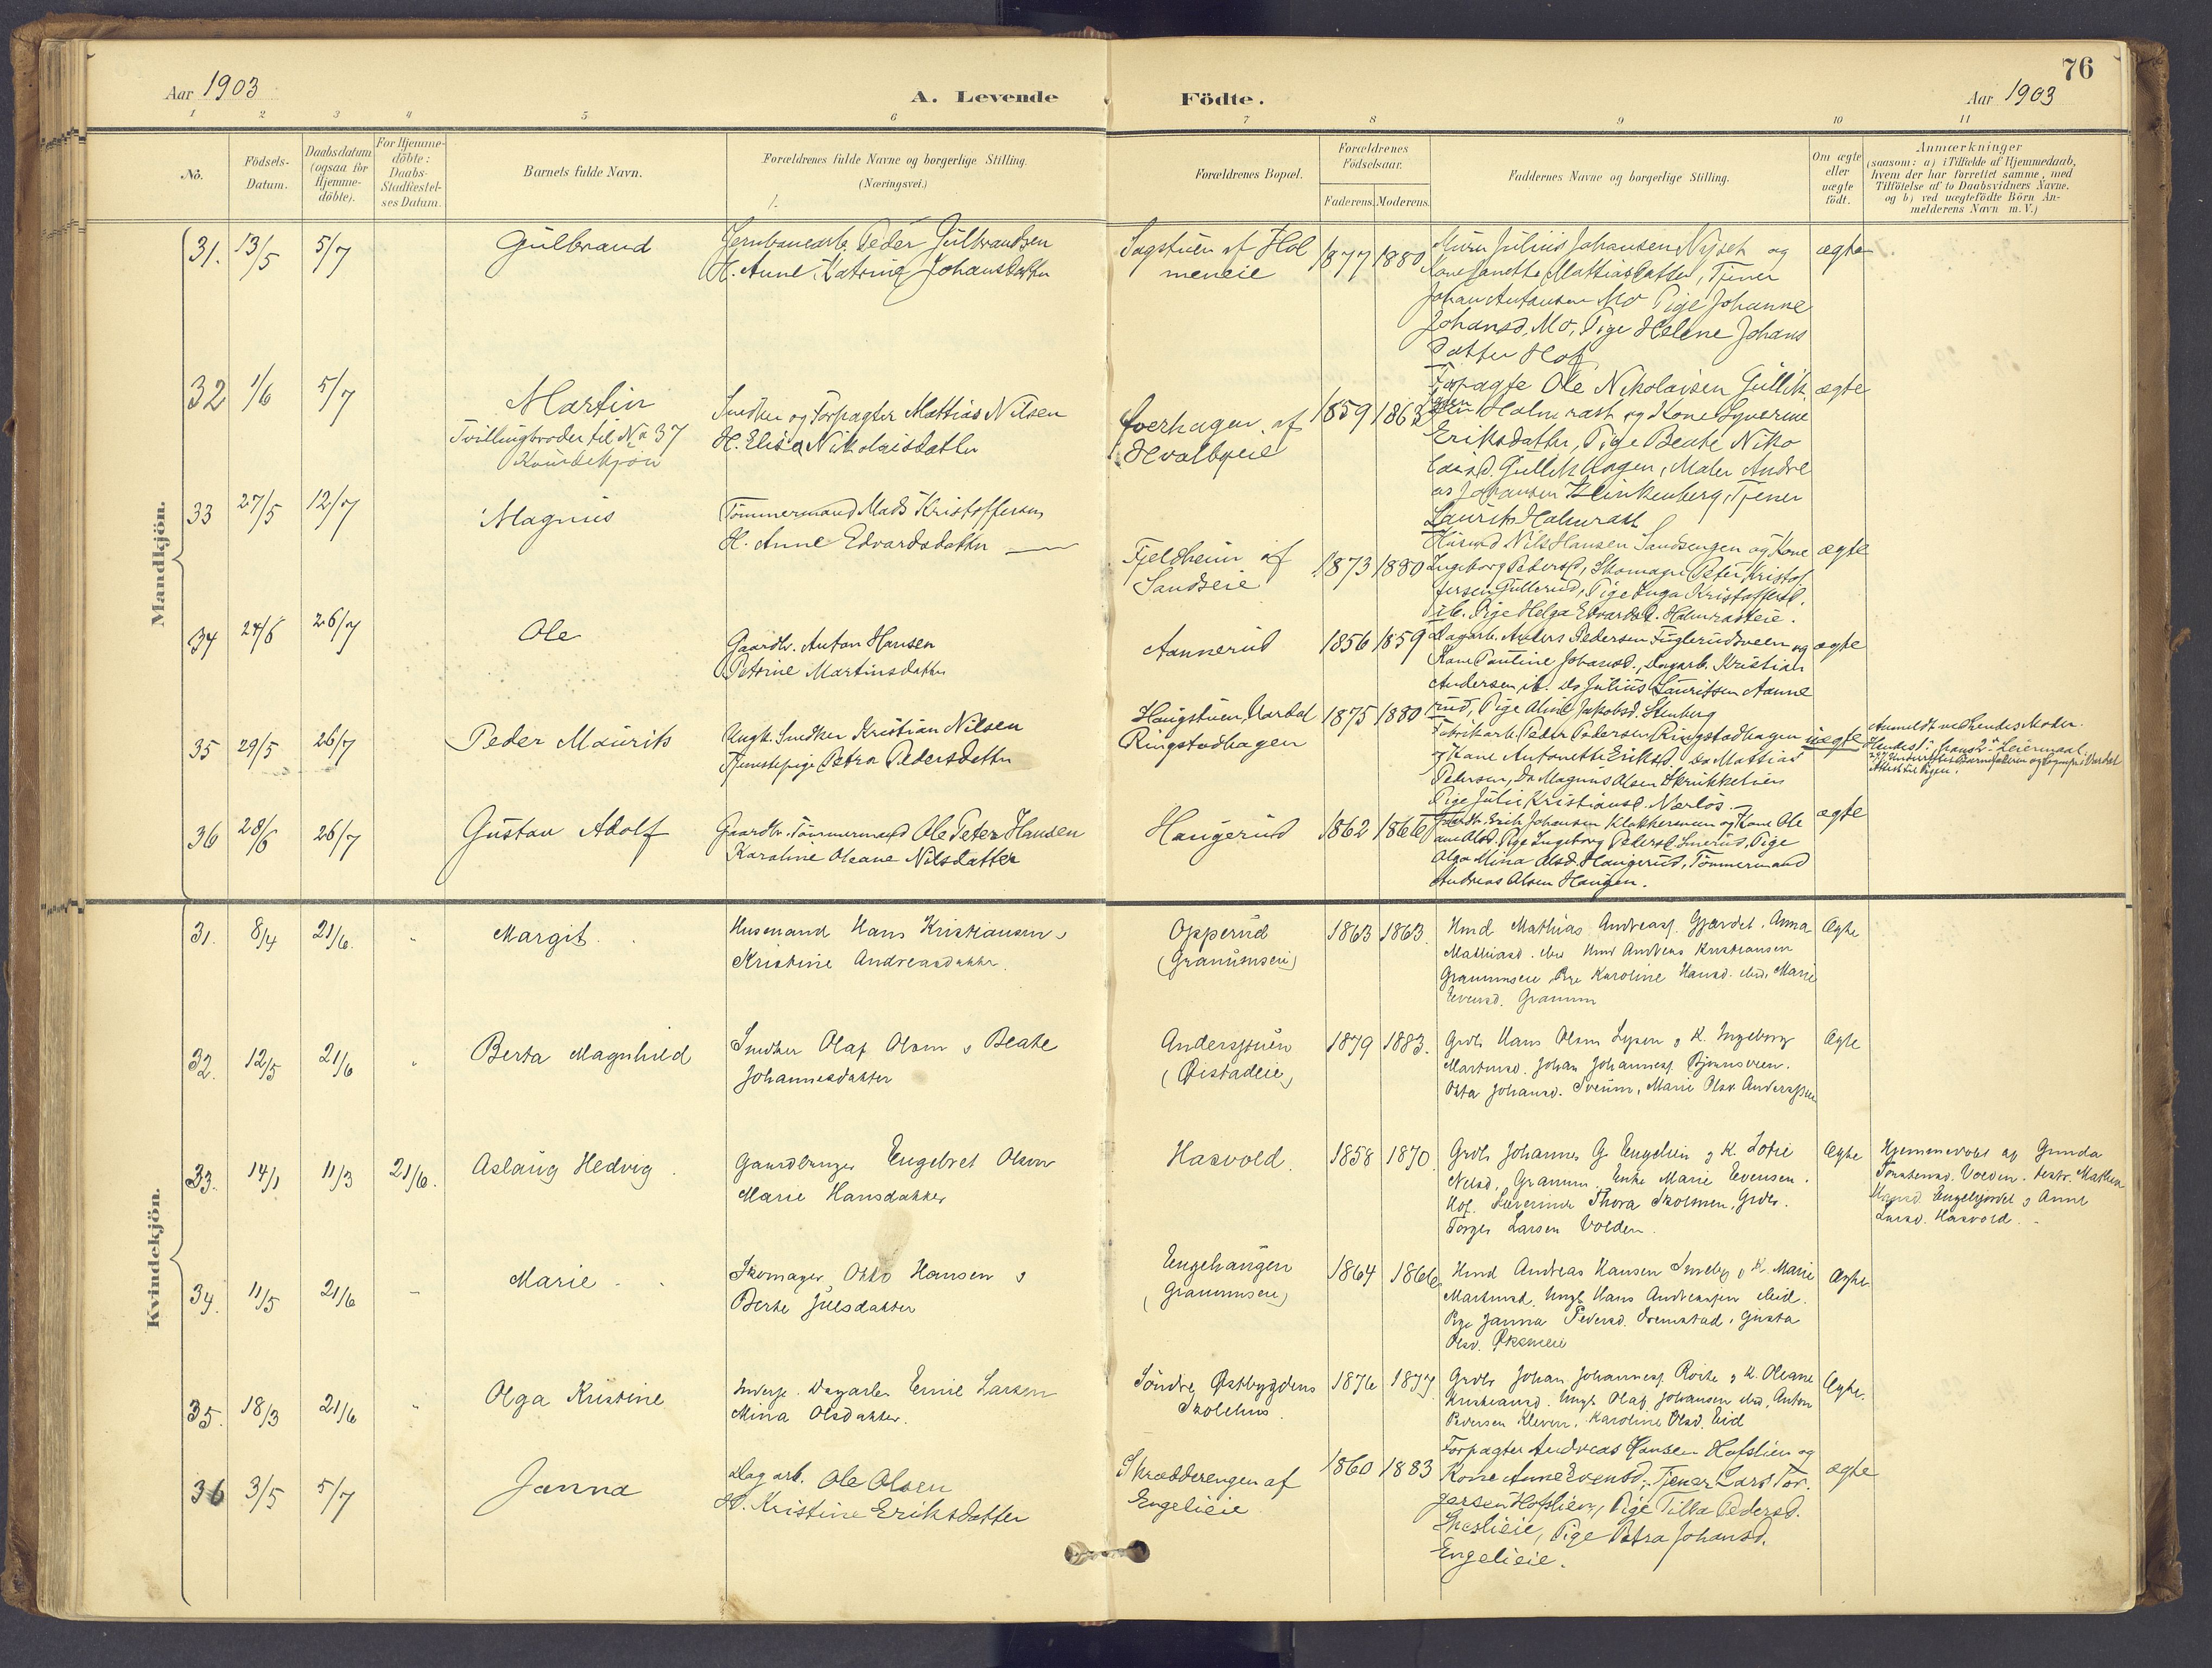 76
Aar 1903
A. Levende
Födte.
Aar 1903
1 2 3 4 5 6 7 8 9 10 11
No.
Födsels-
Datum.
Daabsdatum
(ogsaa for
Hjemme-
döbte).
For Hjemme-
döbte:
Daabs-
Stadfæstel-
ses Datum.
Barnets fulde Navn.
Forældrenes fulde Navne og borgerlige Stilling.
(Næringsvei.)
Forældrenes Bopæl.
Forældrenes
Födselsaar.
Faderens. Moderens.
Faddernes Navne og borgerlige Stilling.
Om ægte
eller
uægte
födt.
Anmærkninger
(saasom: a) i Tilfælde af Hjemmedaab,
hvem der har forrettet samme, med
Tilföielse af to Daabsvidners Navne.
og b) ved uægtefödte Börn An-
melderens Navn m. V.)
Mandkjön.
31. 13/5 5/7
Gulbrand
Jernbanearb. Peder Gulbrandsen
H. Anne Katrina Johansdatter
Sagstuen af Hol
meneie
1877 1880
Murer Julius Johansen Nyset og
Kone Janette Mattiasdatter, Tjener
Johan Antonsen Mo Pige Johanne
Johansd. Mo, Pige Helene Johans
datter Hof
ægte
32 1/6 5/7
Martin
Tvillingbroder til No 37
Kvindekjön
Snedker og Forpagter Mattias Nilsen
H. Elisa Nikolaisdatter
Hvalbyeie
1859 1863
Forpagte Ole Nikolaisen Gullik
Holmrast og Kone Syverine
Eriksdatter, Pige Beate Niko
laisd. Gullikhagen, Maler Andre
as Johansen Klinkenberg, Tjener
Laurits Holmrast
ægte
33 27/5 12/7
Magnus
Tömmermand Mads Kristoffersen
H. Anne Edvardsdatter
Fjeldheim af
Sandseie
1873 1880
Husmd Nils Hansen Sandsengen og Kone
Ingeborg Pedersd, Skomager Peter Kristof
fersen Gullerud, Pige Inga Kristoffersd.
ib. Pige Helga Edvardsd. Holmrasteie.
ægte
34 24/6 26/7
Ole
Gaardbr. Anton Hansen
Petrine Martinsdatter
Aannerud
1856 1859
Dagarb. Anders Pedersen Fuglerudsveen og
Kone Pauline Johansd., Dagarb. Kristian
Andersen ib. Do Julius Lauritsen Aanne
rud, Pige Aline Jakobsd. Stenberg
ægte
35 29/5 26/7
Peder Maurits
Ungk. Snedker Kristian Nilsen
Tjenestepige Petra Pedersdatter
Haugstuen, Vardal
Ringstadhagen
1875 1880
Fabrikarb. Peder Pedersen Ringstadhagen
og Kone Antonette Eriksd. Do Mattias
Pedersen, Do Magnus Olsen Skrukkelien
Pige Julie Kristiansd. Nærlös.
uægte
Anmeldt ved hendes Moder.
Hendes 1ste hans 2det Leiermaal.
36 28/6 26/7
Gustav Adolf
Gaardbr. Tömmermand Ole Peter Hansen
Karoline Oleane Nilsdatter
Haugerud
1862 1866
Gaardbr. Erik Johansen Klokkersveen og Kone Ole
ane Olsd. Pige Ingeborg Pedersd. Smerud, Pige
Olga Mina Olsd. Haugerud, Tömmermand
Andreas Olsen Haugen.
ægte
Kvindekjön.
31. 8/4 21/6.
Margit.
Husmand Hans Kristiansen &
Kristine Andreasdatter.
Opperud
(Granumseie)
1863 1863.
Hmd Mathias Andreasf. Gjærdet, Anna
Mathiasd. ibid Hmd Andreas Kristiansen
Granumseie, Pge Karoline Hansd. ibid, Marie
Evensd. Granum
Ægte
32. 12/5 21/6
Berta Magnhild
Snedker Olaf Olsen & Beate
Johannesdatter
Anderssuen
(Öistadeie)
1879 1883.
Grdbr Hans Olsen Lysen & K. Ingeborg
Martinsd. Johan Johannesf. Bjørnsveen.
Okta Johansd. Sveum, Marie Olsd. Anderssuen
Ægte
33. 14/1 11/3 21/6.
Aslaug Hedvig.
Gaardbruger Engebret Olsen
Marie Hansdatter
Hasvold.
1858 1870.
Grdbr Johannes G. Engelien & K. Lotie
Nelsd, Granum, Enke Marie Evensen.
Hof. Lærerinde Thora Skolmen, Grdbr.
Torger Larsen Volden.
Ægte
Hjemmedöbt af Gunda
Torstensd. Volden. testr. Mathea
Hansd. Engelsjordet & Anne
Larsd. Hasvold.
34. 11/5 21/6
Marie
Skomager Otto Hansen &
Berte Juelsdatter
Engehaugen
(Granumseie)
1864 1866
Hmd Andreas Hansen Sineby & K. Marie
Martinsd. Ungk Hans Andreassen ibid.
Pge Janna Pedersd. Dremstad, Gusta
Olsd.
Ægte
35. 18/3 21/6
Olga Kristine
Inderst. Dagarbr Emil Larsen
Mina Olsdatter.
Söndre Østbygdens
Skolehus.
1876 1877.
Grdbr Johan Johannesf. Roite & K. Oleane
Kristiansd. Ungk Olaf Johansen ibid, Anton
Pedersen Kleven. Karoline Olsd. Eid
Ægte.
36 3/5 5/7
Janna
Dagarb. Ole Olsen
H. Kristine Eriksdatter
Skrædderengen af
Engelieie
1860 1883
Forpagter Andreas Hansen Hofslien og
Kone Anne Evensd., Tjener Lars Tor
gersen Hofslien, Pige Tilla Pedersd.
Pige Petra Johansd.
Engelieie.
ægte